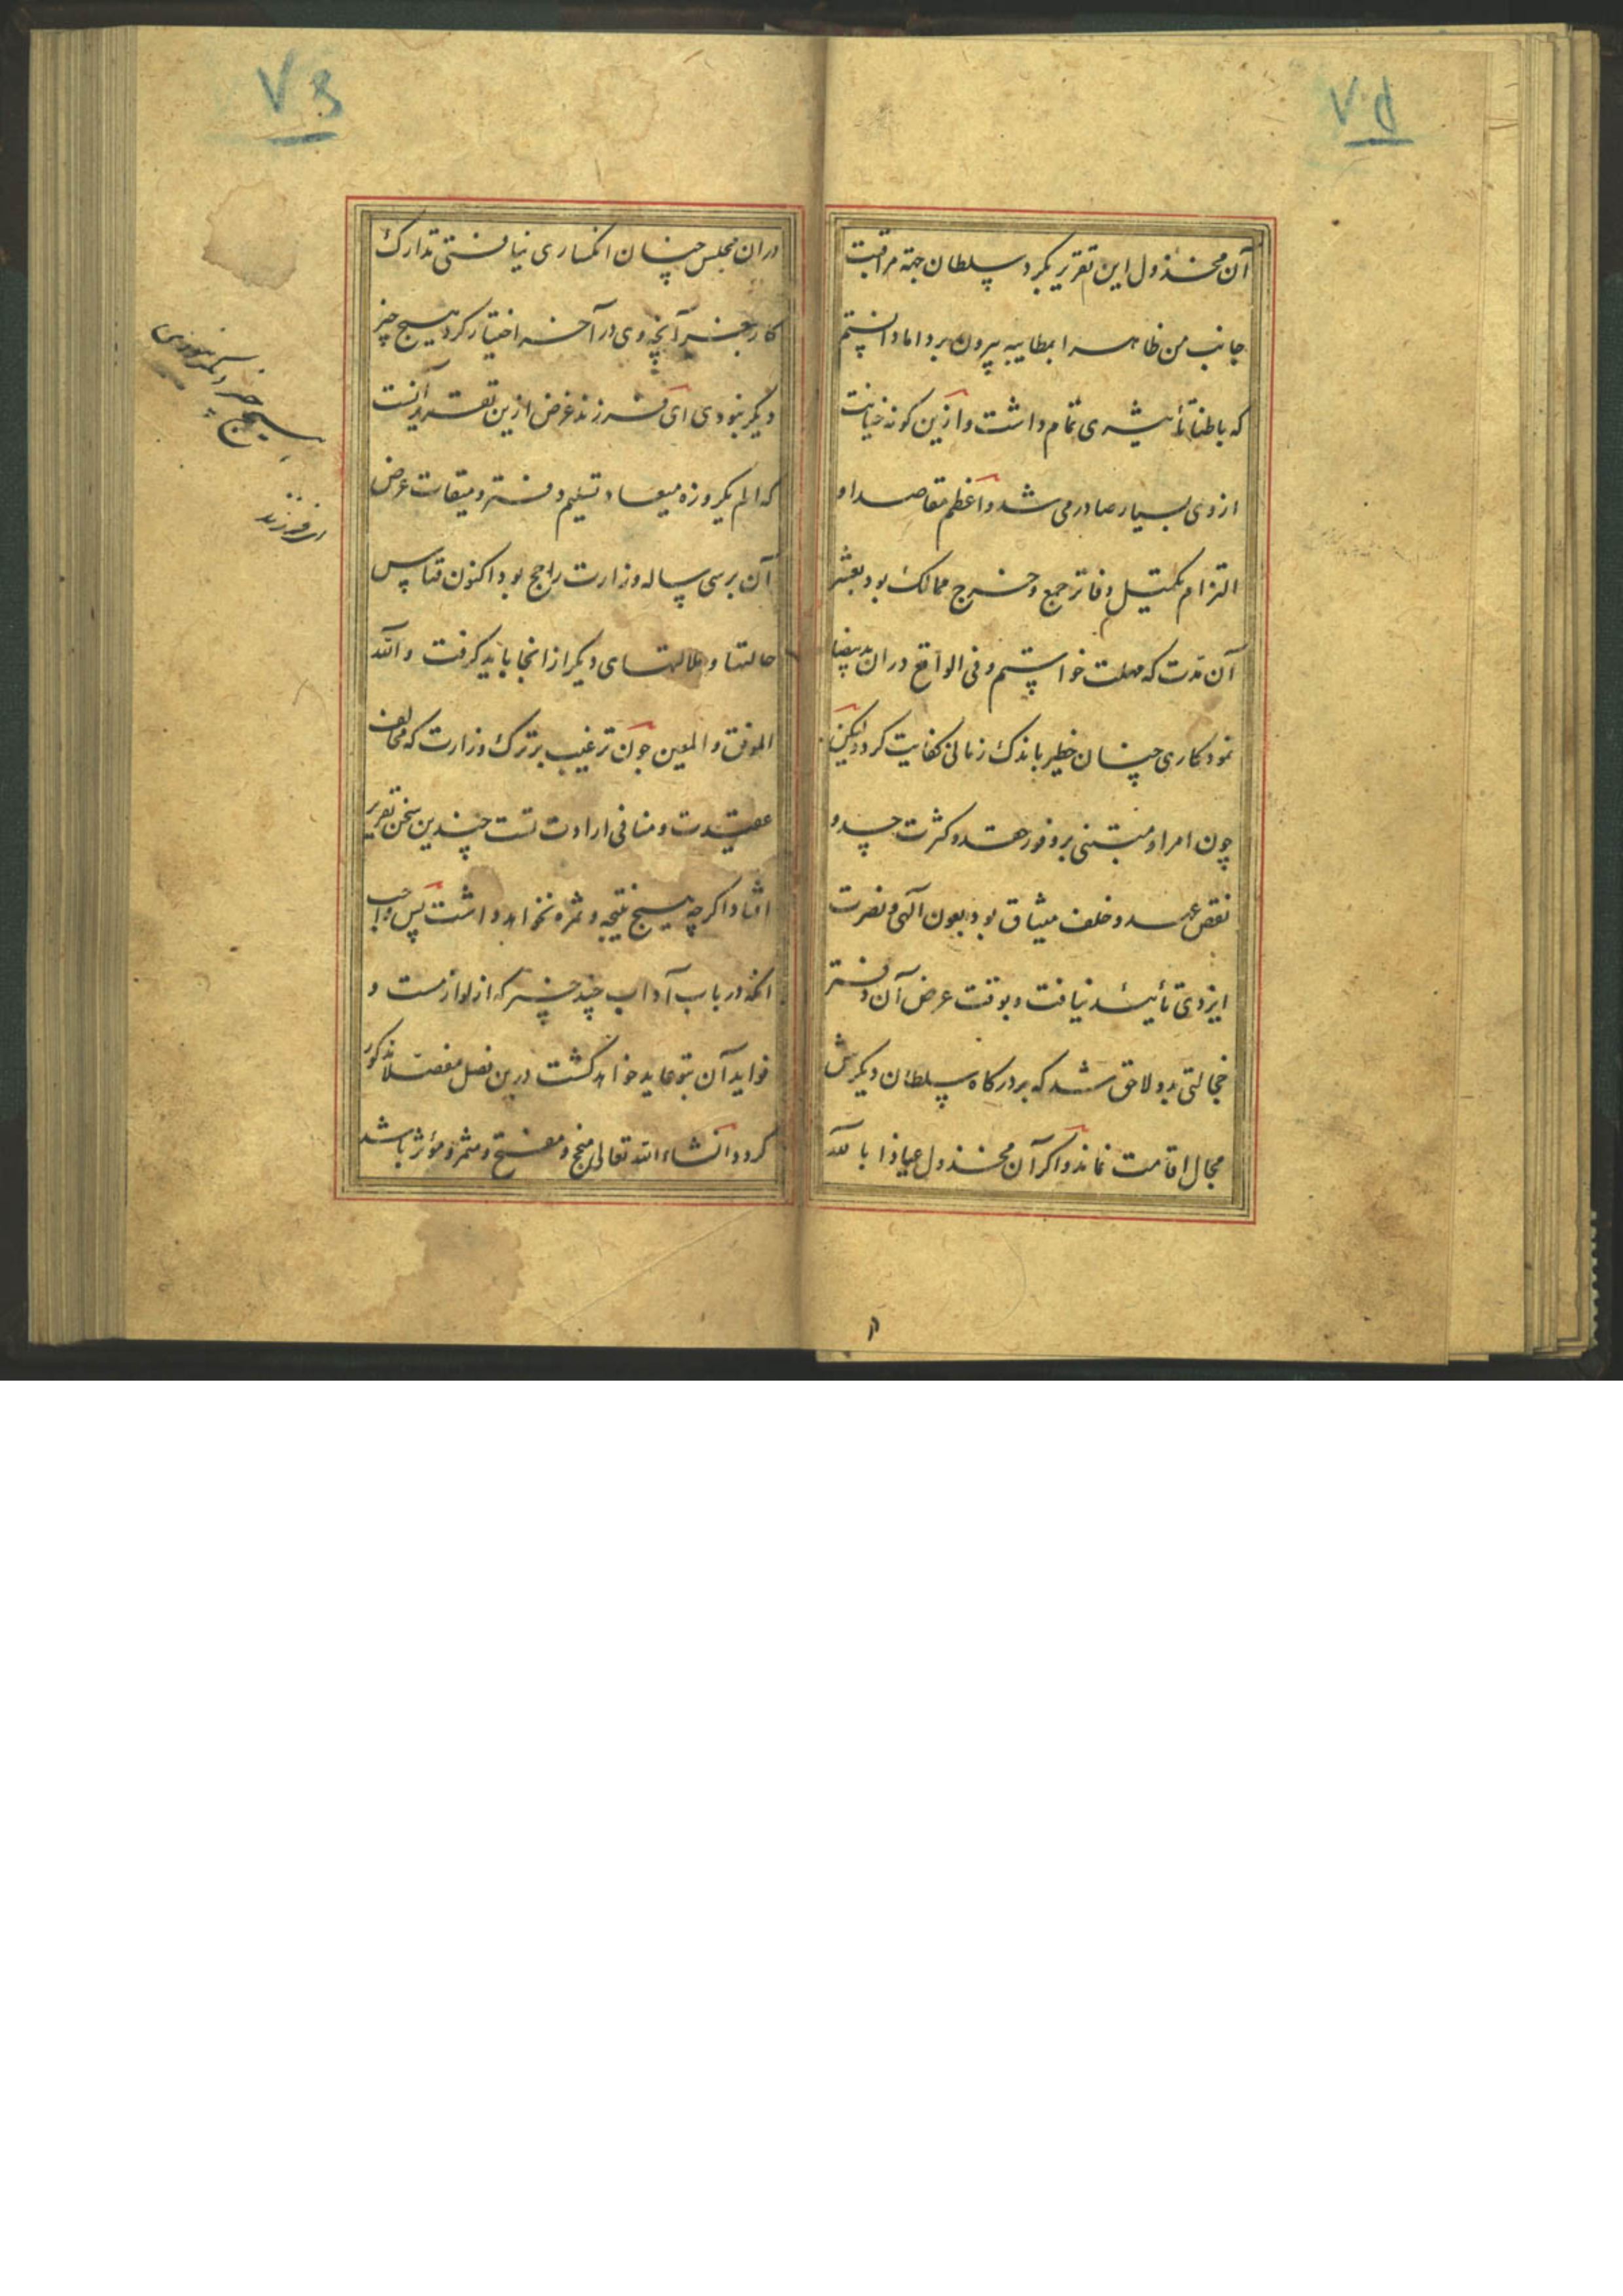 آن مخذول این تقریر بکرد سلطان جهة مراقبت
جانب من ظاهرا بمطایبه بیرون برد اما دانستم
که باطنا تأثیری تمام داشت و ازین کونه خیانت
از وی بسیار صادر می شد و اعظم مقاصد او
التزام تکمیل دفاتر جمع و خرج ممالک بود بعشر
آن مدت که مهلت خواستم و فی الواقع دران ید بیضا
نمود کاری چنان خطیر باندک زمانی کفایت کرد و لیکن
چون امر او مبتنی بر وفور حقد و کثرت حسد و
نقض عهد و خلف میثاق بود بعون الهی و نصرت
ایزدی تأئید نیافت و بوقت عرض آن دفتر
خجالتی بدو لاحق شد که بر درکاه سلطان دیکرش
مجال اقامت نماند و اکر آن مخذول عیاذا بالله
دران مجلس چنان انکساری نیافتی تدارک
کار بغیر آنچه وی در آخر اختیار کرد هیچ چیز
دیکر نبودی ای فرزند غرض ازین تقریر آنست
که الم یکروزه میعاد تسلیم دفتر و میقات عرض
آن بر سی ساله وزارت راجح بود اکنون قیاس
حالتها و ملالتهای دیکر از انجا باید کرفت و الله
الموفق و المعین چون ترغیب بر ترک وزارت که مخالف
عقیدت و منافی ارادت تست چندین سخن تقریر
افتاد اکرچه هیچ نتیجه و ثمره نخواهد داشت پس واجب
آنکه در باب آداب چند چیز که از لوازمست و
فواید آن بتو عاید خواهد کشت درین فصل مفصلا مذکور
کردد انشاء الله تعالی منجح و مفتح و مثمر و مؤثر باشد
هیچ چیز دیگر نبودی
ای فرزند